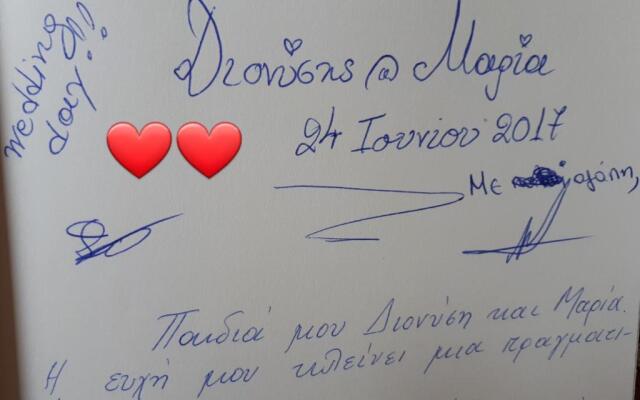 wedding
day!!
Διονύσης @ Μαρία
24 Ιουνίου 2017
Με αγάπη,
Παιδιά μου Διονύση και Μαρία.
Η ευχή μου κλείνει μια πραγματι-